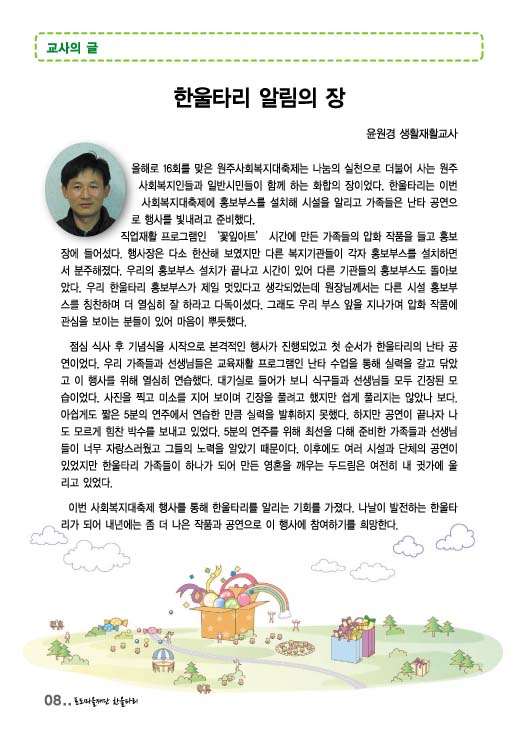 교사의 글
한울타리 알림의 장
윤원경 생활재활교사
올해로 16회를 맞은 원주사회복지대축제는 나눔의 실천으로 더불어 사는 원주
사회복지인들과 일반시민들이 함께 하는 화합의 장이었다. 한울타리는 이번
사회복지대축제에 홍보부스를 설치해 시설을 알리고 가족들은 난타 공연으
로 행사를 빛내려고 준비했다.
직업재활 프로그램인 ‘꽃잎아트’ 시간에 만든 가족들의 압화 작품을 들고 홍보
장에 들어섰다. 행사장은 다소 한산해 보였지만 다른 복지기관들이 각자 홍보부스를 설치하면
서 분주해졌다. 우리의 홍보부스 설치가 끝나고 시간이 있어 다른 기관들의 홍보부스도 돌아보
았다. 우리 한울타리 홍보부스가 제일 멋있다고 생각되었는데 원장님께서는 다른 시설 홍보부
스를 칭찬하며 더 열심히 잘 하라고 다독이셨다. 그래도 우리 부스 앞을 지나가며 압화 작품에
관심을 보이는 분들이 있어 마음이 뿌듯했다.
점심 식사 후 기념식을 시작으로 본격적인 행사가 진행되었고 첫 순서가 한울타리의 난타 공
연이었다. 우리 가족들과 선생님들은 교육재활 프로그램인 난타 수업을 통해 실력을 갈고 닦았
고 이 행사를 위해 열심히 연습했다. 대기실로 들어가 보니 식구들과 선생님들 모두 긴장된 모
습이었다. 사진을 찍고 미소를 지어 보이며 긴장을 풀려고 했지만 쉽게 풀리지는 않았나 보다.
아쉽게도 짧은 5분의 연주에서 연습한 만큼 실력을 발휘하지 못했다. 하지만 공연이 끝나자 나
도 모르게 힘찬 박수를 보내고 있었다. 5분의 연주를 위해 최선을 다해 준비한 가족들과 선생님
들이 너무 자랑스러웠고 그들의 노력을 알았기 때문이다. 이후에도 여러 시설과 단체의 공연이
있었지만 한울타리 가족들이 하나가 되어 만든 영혼을 깨우는 두드림은 여전히 내 귓가에 울
리고 있었다.
이번 사회복지대축제 행사를 통해 한울타리를 알리는 기회를 가졌다. 나날이 발전하는 한울타
리가 되어 내년에는 좀 더 나은 작품과 공연으로 이 행사에 참여하기를 희망한다.
08.. 한울타리